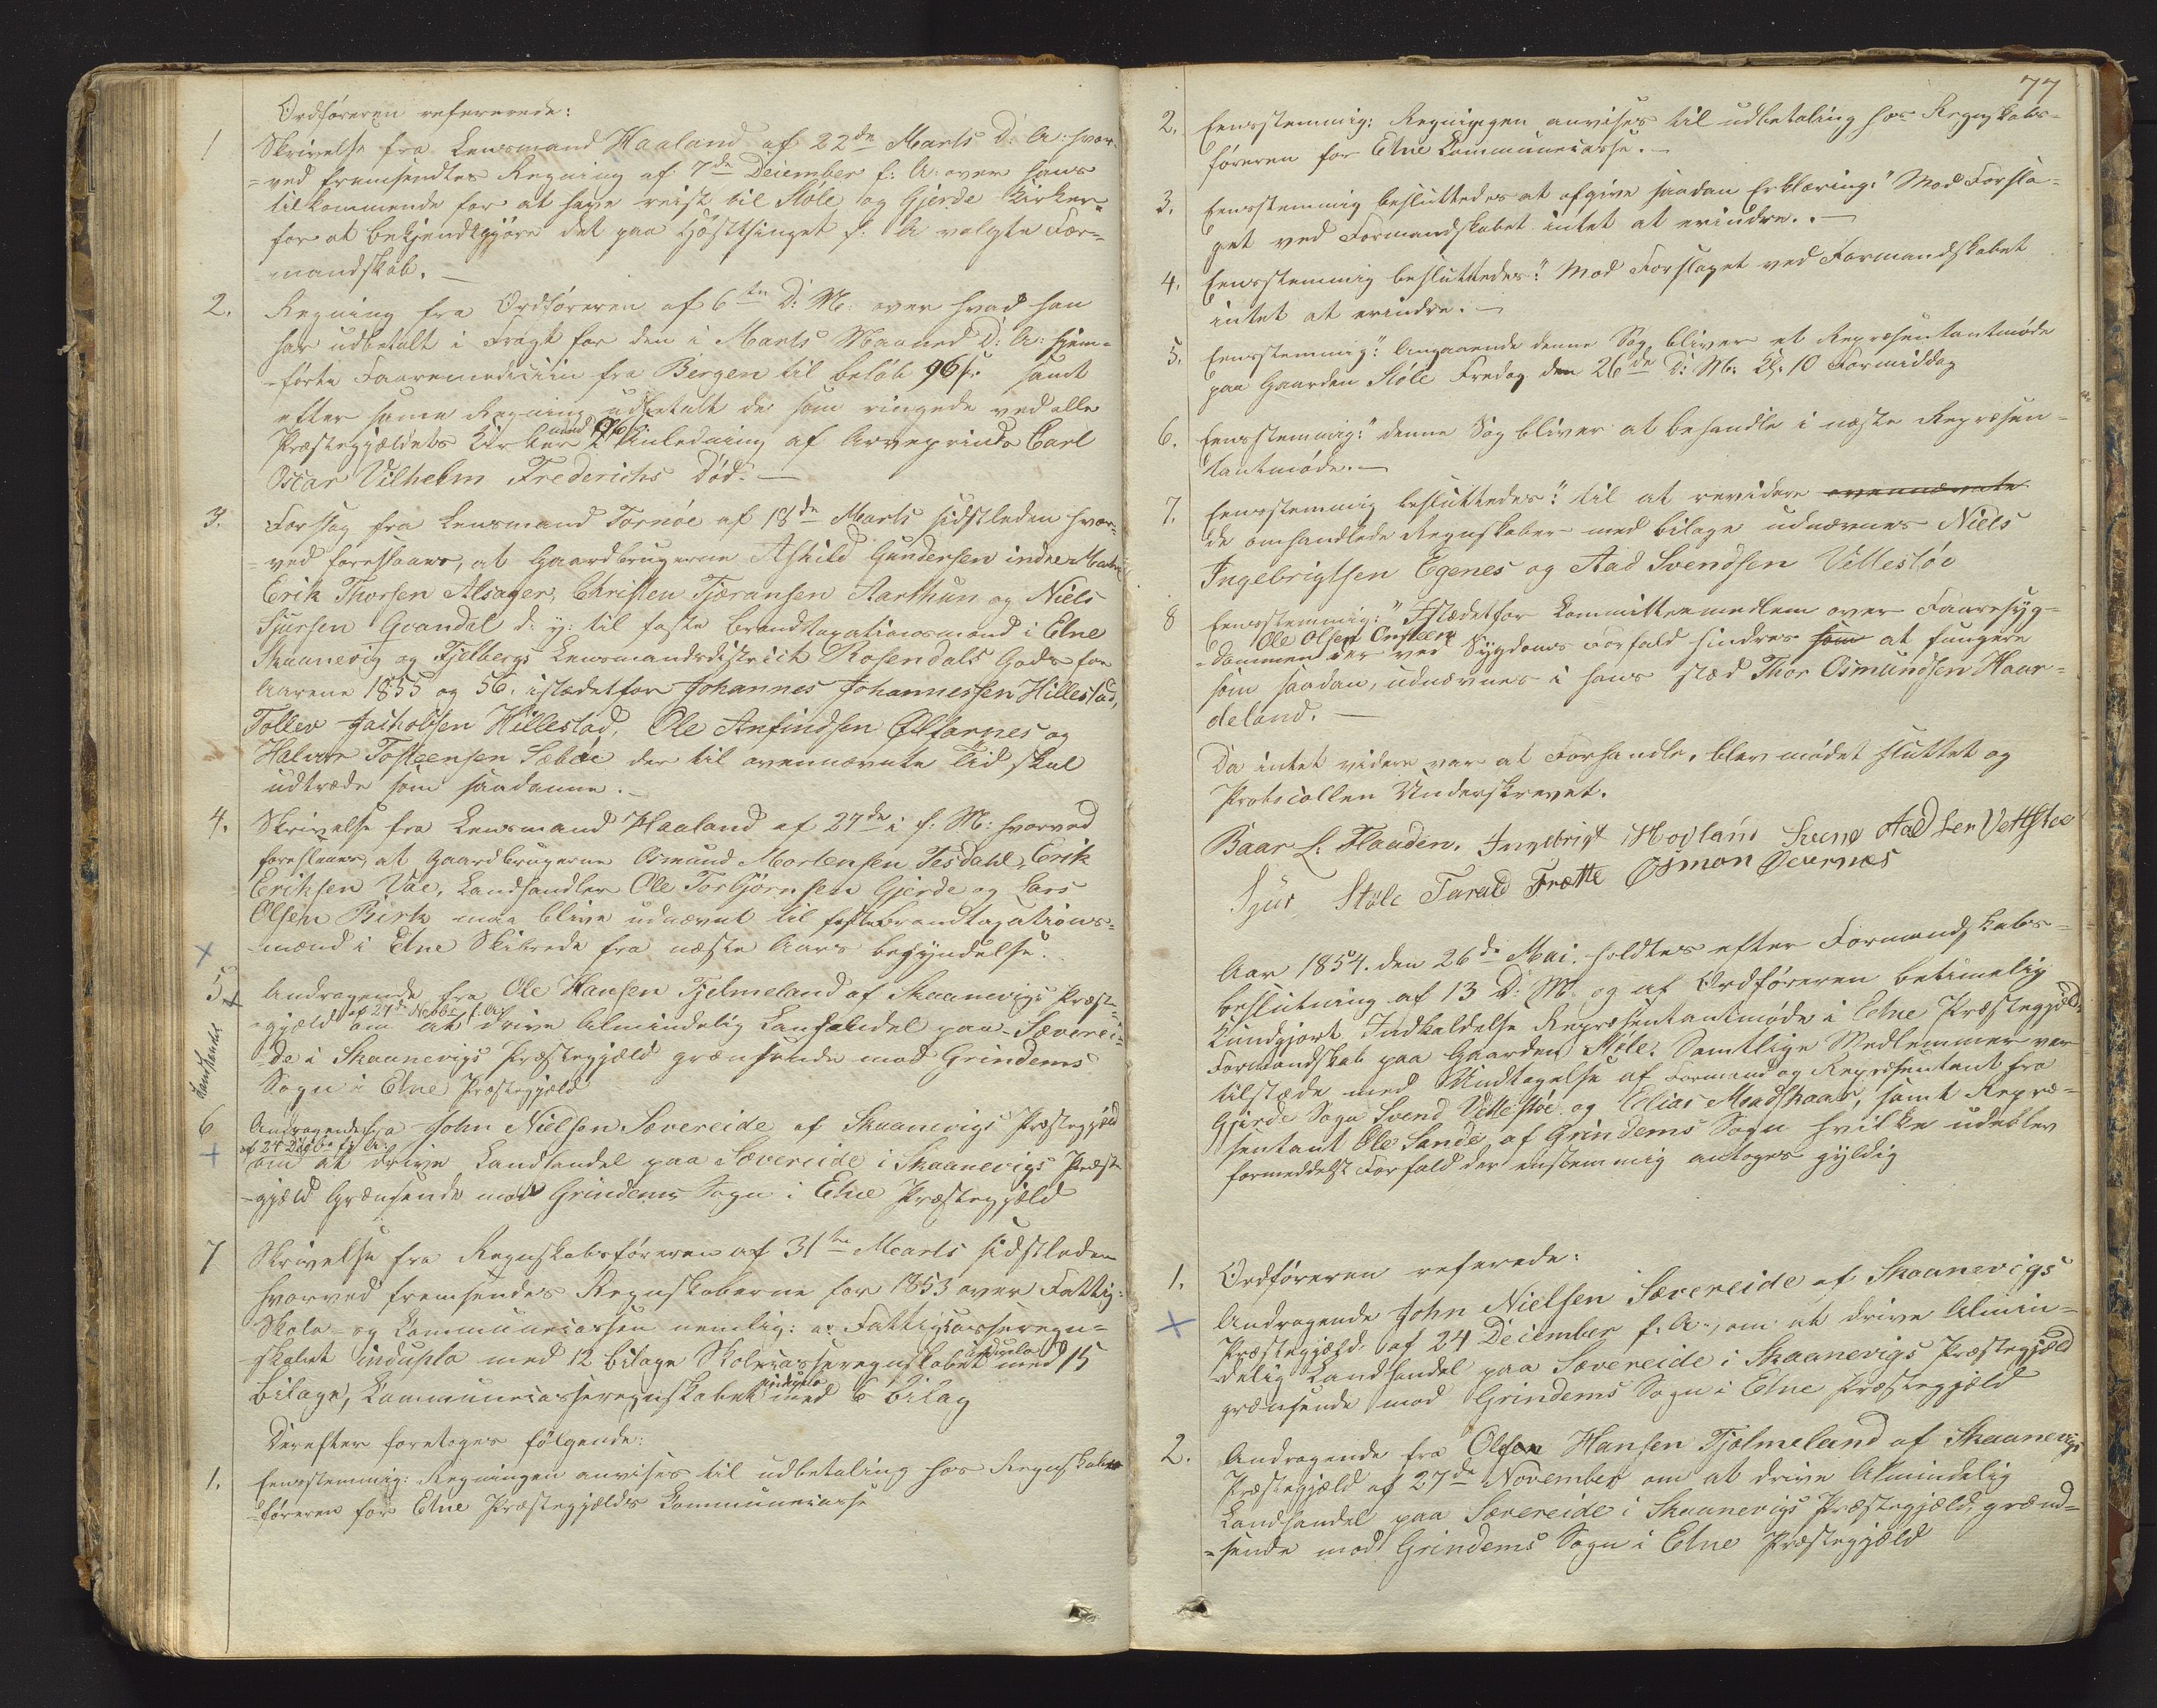 Ordføreren refererede:
1 Skrivelse fra Lensmand Haaland af 22de Marts D: A: hvor-
=ved fremsendtes Regning af 7de December f: A: over hans
tilkommende for at have reist til Støle og Gjerde Kirker
for at bekjendtgjøre det paa Høstthinget f: A valgte For=
mandskab. —
2. Regning fra Ordføreren af 6te D: M: over hvad han
har udbetalt i Fragt for den i Marts Maaned D: A: hjem=
=førte Faaremedicin fra Bergen til beløb 96 s. samt
efter samme Regning udbetalt de som ringede ved alle
Præstegjældets Kirker i Anledning af Arveprinds Carl
Oscar Vilhelm Frederichs Død. —
3. Forslag fra Lensmand Tornøe af 18de Marts sidstleden hvor=
=ved foreslaaes, at Gaardbrugerne Askild Gundersen indre Matre
Erik Thorsen Alsager, Christen Tjæransen Aarthun og Niels
Sjursen Qvandal d: y: til faste Brandtaxationsmænd i Etne
Skaanevig og Fjelbergs Lensmandsdistrict Rosendals Gods for
Aarene 1855 og 56. istædetfor Johannes Johannessen Hillestad,
Tollev Jachobsen Hillestad, Ole Anfindsen Ølfarnes og
Halvor Tosteensen Sæbøe der til ovennævnte Tid skal
udtræde som saadanne. —
4. Skrivelse fra Lensmand Haaland af 27de i f. M: hvorved
foreslaaes at Gaardbrugerne Osmund Mortensen Tesdahl, Erik
Eriksen Vae, Landhandler Ole Torbjørnsen Gjerde og Lars
Olsen Birk maa blive udnævnt til faste Brandtaxations=
-mænd i Etne Skibrede fra næste Aars begyndelse.
x
5 x Andragende fra Ole Hansen Tjelmeland af Skaanevigs Præst=
af 27de Novbr f. A:
-gjæld om at drive Almindelig Landhandel paa Sæverei=
Landhandel
de i Skaanevigs Præstegjæld grænsende mod Grindems
Sogn i Etne Præstegjæld
6 Andragende fra John Nielsen Sævereide af Skaanevigs Præstegjæld
af 24 Decbr f. A:
+ om at drive Landhandel paa Sævereide i Skaanevigs Præste
-gjæld Grænsende mod Grindems Sogn i Etne Præstegjæld
7 Skrivelse fra Regnskabsføreren af 31te Marts sidstleden
hvorved fremsendes Regnskaberne for 1853 over Fattig-
Skole- og Kommunecassen nemlig: a: Fattigcasseregn=
skabet indupla med 12 bilage Skolecasseregnskabet indupla med 15
bilage, Kommunecasseregnskabet indupla med 6 bilag
Derefter foretoges følgende:
1. Eensstemmig: Regningen anvises til udbetaling hos Regnskabs
=føreren for Etne Præstegjælds Kommunecasse
77
2. Eensstemmig: Regningen anvises til udbetaling hos Regnskabs=
føreren for Etne Kommunecasse. —
3. Eensstemmig besluttedes at afgive saadan Erklæring: "Mod Forsla=
get ved Formandskabet intet at erindre. . —
4. Eensstemmig besluttedes: " Mod Forslaget ved Formandskabet
intet at erindre. —
5. Eensstemmig: " Angaaende denne Sag bliver et Repræsentantmøde
paa Gaarden Støle Fredag den 26de D: M: Kl: 10 Formiddag
6. Eensstemmig: " denne Sag bliver at behandle i næste Repræsen=
tantmøde. —
7. Eensstemmig besluttedes: " til at revidere ovennævnte
de omhandlede Regnskaber med bilage udnævnes Niels
Ingebrigtsen Egenes og Aad Svendsen Vettestøe
8 Eensstemmig: " Istædetfor Committeemedlem over Faaresyg=
Ole Olsen Ensteen
=dommen der ved Sygdoms Forfald hindres som at fungere
som saadan, udnævnes i hans stæd Thor Osmundsen Haar=
deland. —
Da intet videre var at Forhandle, blev mødet sluttet og
Protocollen Underskrevet.
Baar L: Flaaden. Ingebrigt Hovland Svend Aadsen Vettstøe
Sjur Støle Tarald Frette Osmon Øvernes
Aar 1854. den 26de Mai. holdtes efter Formandskabs=
beslutning af 13 D: M: og af Ordføreren betimelig
Kundgjort Indkaldelse Repræsentantmøde i Etne Præstegjælds
Formandskab paa Gaarden Støle. Samtlige Medlemmer var
tilstæde med Undtagelse af Formand og Repræsentant fra
Gjerde Sogn Svend Vettestøe og Elias Maadshaar, samt Repræ=
sentant Ole Sande af Grindems Sogn hvilke udeblev
formeddelst Forfald der enstemmig antoges gyldig
Ordføreren referede:
1. Andragende John Nielsen Sævereide af Skaanevigs
x Præstegjæld, af 24 December f: A:, om at drive Almin=
delig Landhandel paa Sævereide i Skaanevigs Præstegjæld
grænsende mod Grindems Sogn i Etne Præstegjæld
2. Andragende fra Olson Hansen Tjelmeland af Skaanevigs
Præstegjæld af 27de November om at drive Almindelig
Landhandel paa Sævereide i Skaanevigs Præstegjæld, grænd=
=sende mod Grindems Sogn i Etne Præstegjæld